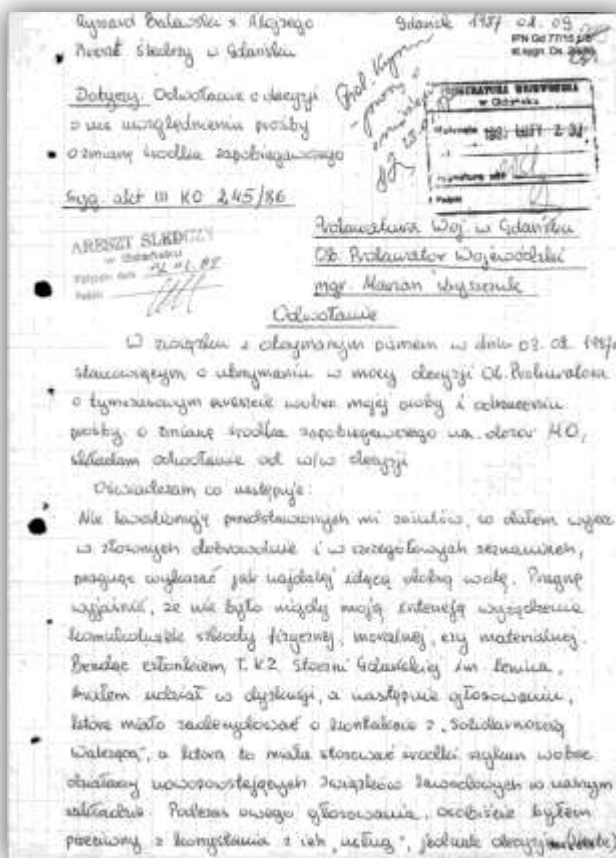 Ryszard s. Alojzego
Gdańsk 1987 02.09
IPN Gd 77/15
Areszt Śledczy w Gdańsku
Dotyczy: Odwołanie o decyzji
o nie uwzględnieniu prośby
o zmianę środka zapobiegawczego
PROKURATURA WOJEWÓDZKA
w Gdańsku
Syg. akt III KO 245/86
ARESZT ŚLEDCZY
w Gdańsku
Prokuratura Woj. w Gdańsku
Ob. Prokurator Wojewódzki
mgr. Marian
Odwołanie
W związku z otrzymanym pismem w dniu 03.02.1987r
stanowiącym o utrzymaniu w mocy decyzji Ob. Prokuratora
o tymczasowym areszcie wobec mojej osoby i odrzuceniu
prośby o zmianę środka zapobiegawczego na dozór MO,
składam odwołanie od w/w decyzji
Oświadczam co następuje:
Nie przedstawionych mi zarzutów, co dałem wyraz
w złożonych dobrowolnie i w szczegółowych zeznaniach,
pragnąc wykazać jak najdalej idącą dobrą wolę. Pragnę
wyjaśnić, że nie było nigdy moją intencją wyrządzenie
komukolwiek szkody fizycznej, moralnej, czy materialnej.
Będąc członkiem T.KZ. Stoczni Gdańskiej im. Lenina,
brałem udział w dyskusji, a następnie głosowaniu,
które miało zadecydować o kontakcie z "Solidarnością
Walczącą", a która to miała stosować środki szykan wobec
działaczy nowopowstających związków zawodowych w naszym
zakładzie. Podczas owego głosowania, osobiście byłem
przeciwny z korzystania z ich "usług", jednak decyzją